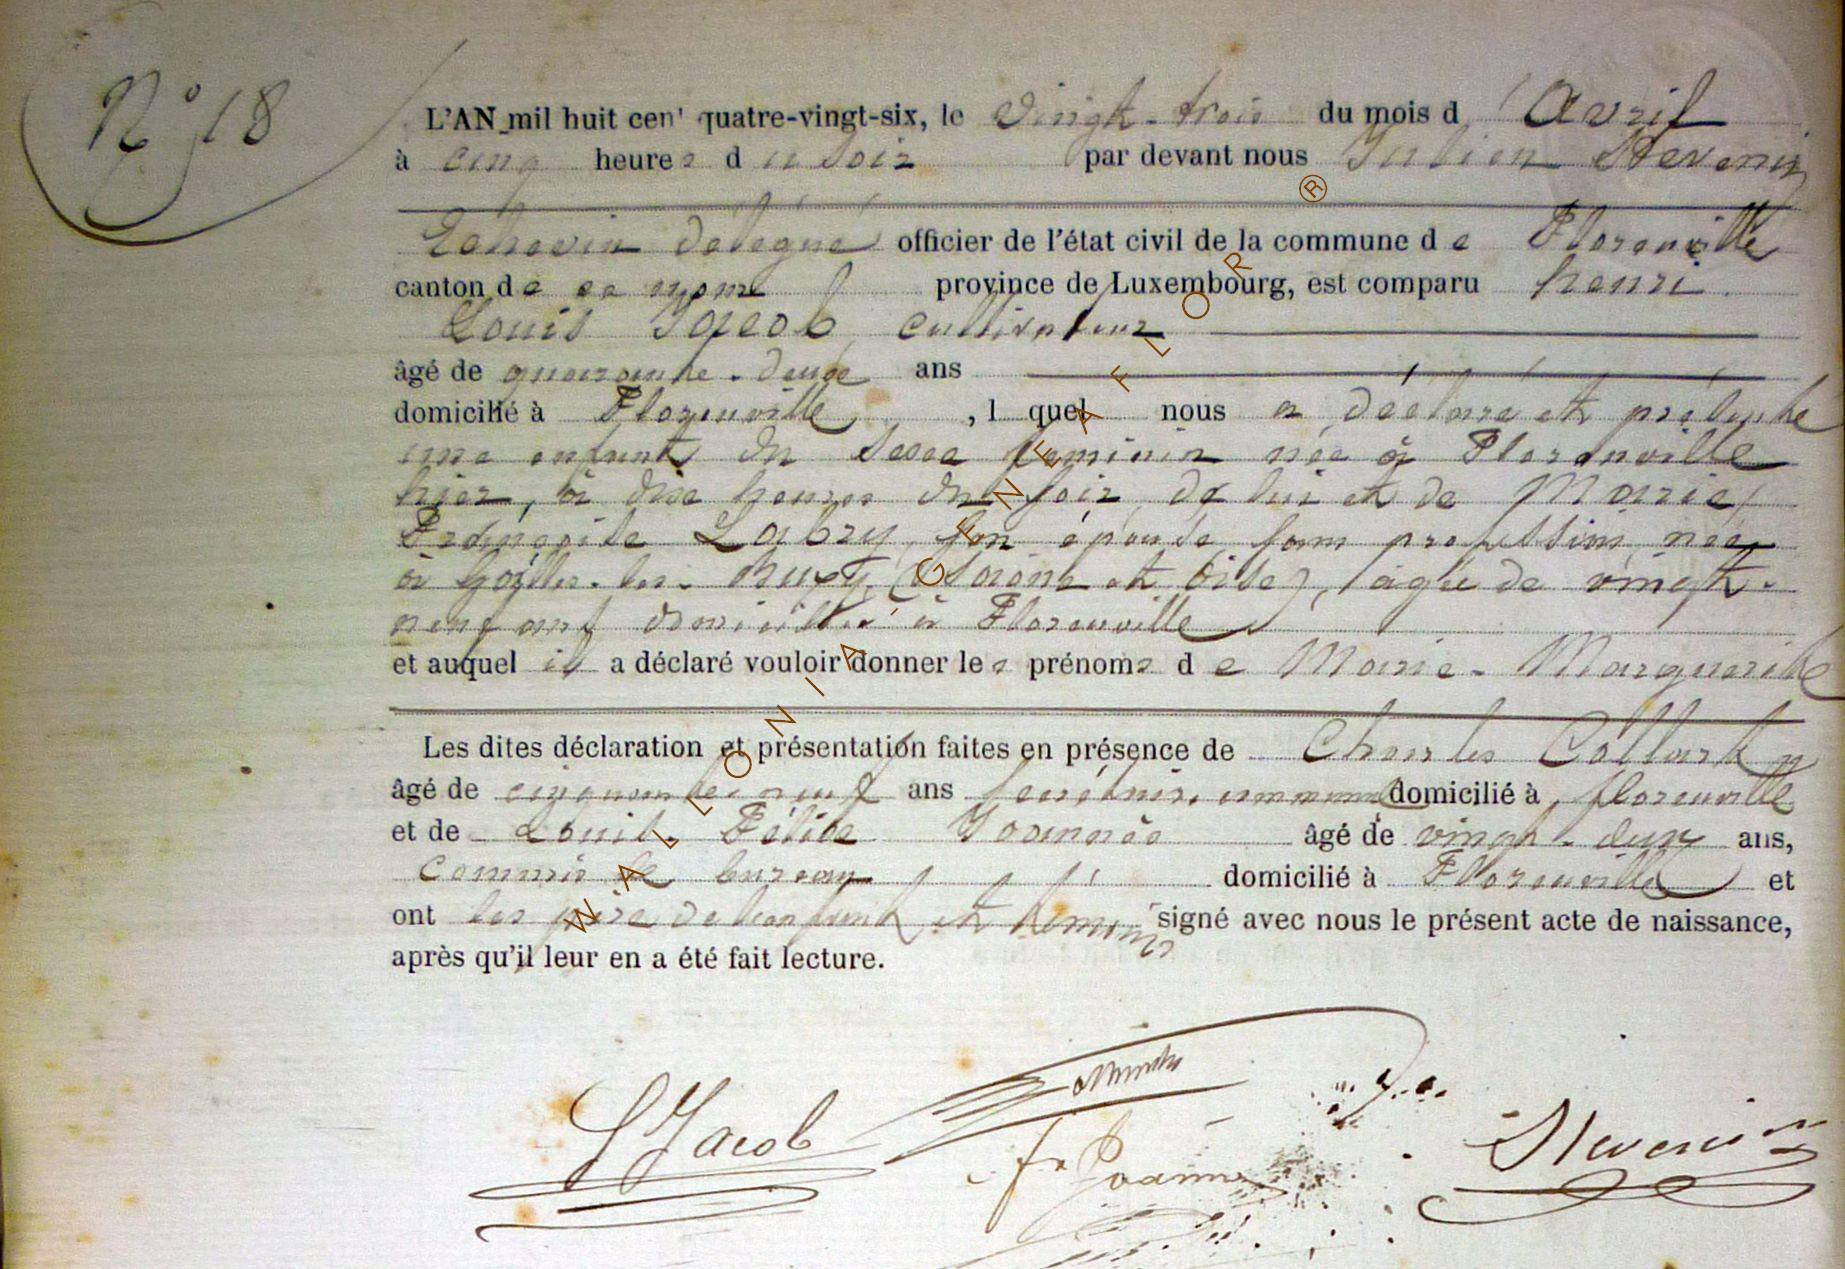 N° 18
L'AN mil huit cen' quatre-vingt-six, le vingt-trois du mois d'Avril
à cinq heures du soir par devant nous Julien Stevenin
Echevin délégué officier de l'état civil de la commune de Florenville
canton de ce nom province de Luxembourg, est comparu henri
Louis Jacob, cultivateur
âgé de quarante-deux ans
domicilié à Florenville, lquel nous a déclaré et présenté
une enfant du sexe féminin née à Florenville
hier, à dix heures du soir, de lui et de Marie
Françoise Labry, son épouse, sans profession, née
à les (Seine et Oise), âgée de vingt-
neuf ans domiciliée à Florenville
et auquel il a déclaré vouloir donner les prénoms de Marie-Marguerite
Les dites déclaration et présentation faites en présence de Charles Collart
âgé de cinquante-neuf ans domicilié à florenville
et de Louis Félix Joannès âgé de vingt-deux ans,
commis de bureau domicilié à Florenville et
ont les père de l'enfant et témoins signé avec nous le présent acte de naissance,
après qu'il leur en a été fait lecture.
WALLONIA-GENEAFLOR®
L Jacob
Stevenin